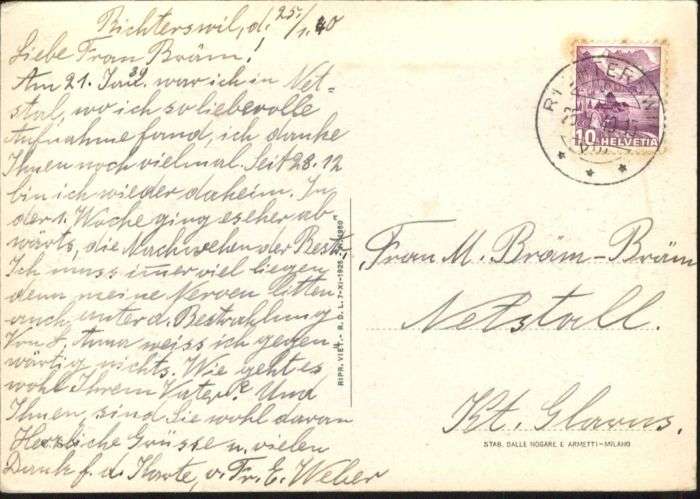 Richterswil, d. 25./1.40
Liebe Frau Bräm!
Am 21. Jan. 39 war ich in Net-
stal, wo ich so liebevolle
Aufnahme fand, ich danke
Ihnen noch vielmal. Seit 28.12
bin ich wieder daheim. In
der 1. Woche ging es eher ab-
wärts, die Nachwehen der Bestr.
Ich muss immer viel liegen
denn meine Nerven litten
auch unter d. Bestrahlung
Von Anna weiss ich gegen-
wärtig nichts. Wie geht es
wohl Ihrem Vater? Und
Ihnen, sind Sie wohl davon
Herzliche Grüsse u. vielen
Dank f. d. Karte, v. Fr. E. Weber
10 HELVETIA
RIPR. VIET. - R. D. L. 7-XI-1925
Frau M. Bräm-Bräm
Netstall.
Kt. Glarus.
STAB. DALLE NOGARE E ARMETTI - MILANO